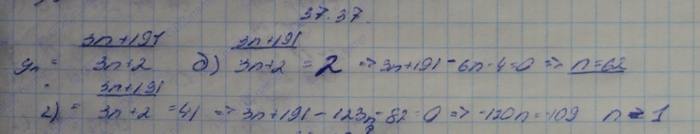 37.37.
yₙ = (3n+191)/(3n+2) д) (3n+191)/(3n+2) = 2 => 3n+191-6n-4=0 => n=62
г) = (3n+191)/(3n+2) = 41 => 3n+191-123n-82=0 => -120n=-109 n=1